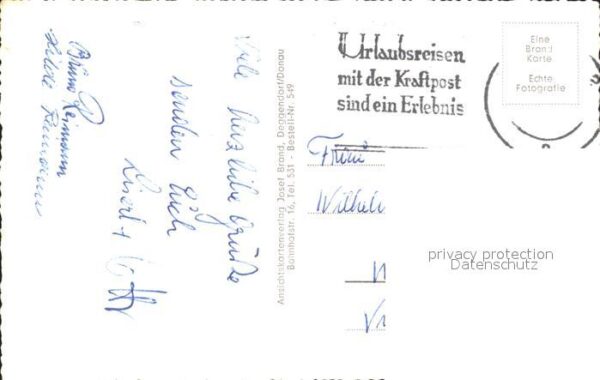 Viele herzliche Grüße
senden Euch
Bruno Reimann
Ansichtskartenverlag Josef Brand, Deggendorf/Donau
Bahnhofstr. 16, Tel. 531 - Bestell-Nr 549
Urlaubsreisen
mit der Kraftpost
sind ein Erlebnis
Eine
Brand
Karte
Echte
Fotografie
Wilhel
privacy protection
Datenschutz